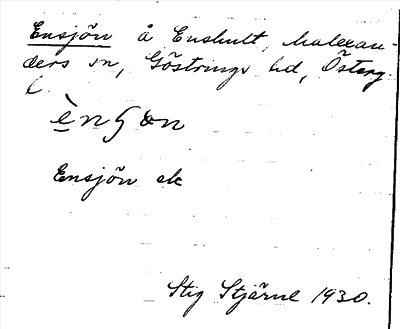 Ensjön å Enshult, Malexan-
ders sn, Göstrings hd, Österg.
l.
ènʃön
Ensjön ek
Stig Stjärne 1930.